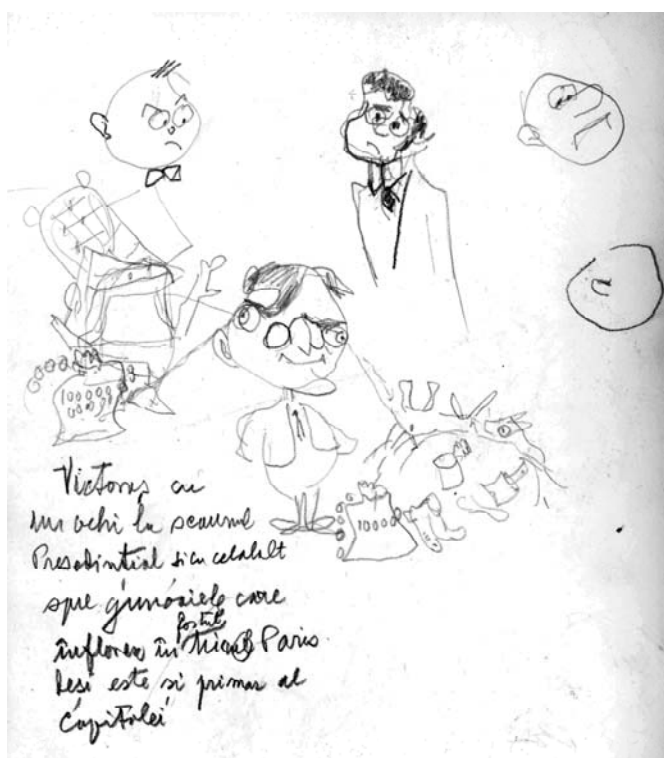 100000
10000
Victoraș cu
un ochi la scaunul
Presedintial si cu celalalt
spre gunoaiele care
infloresc in fostul micul Paris
desi este si primar al
capitalei